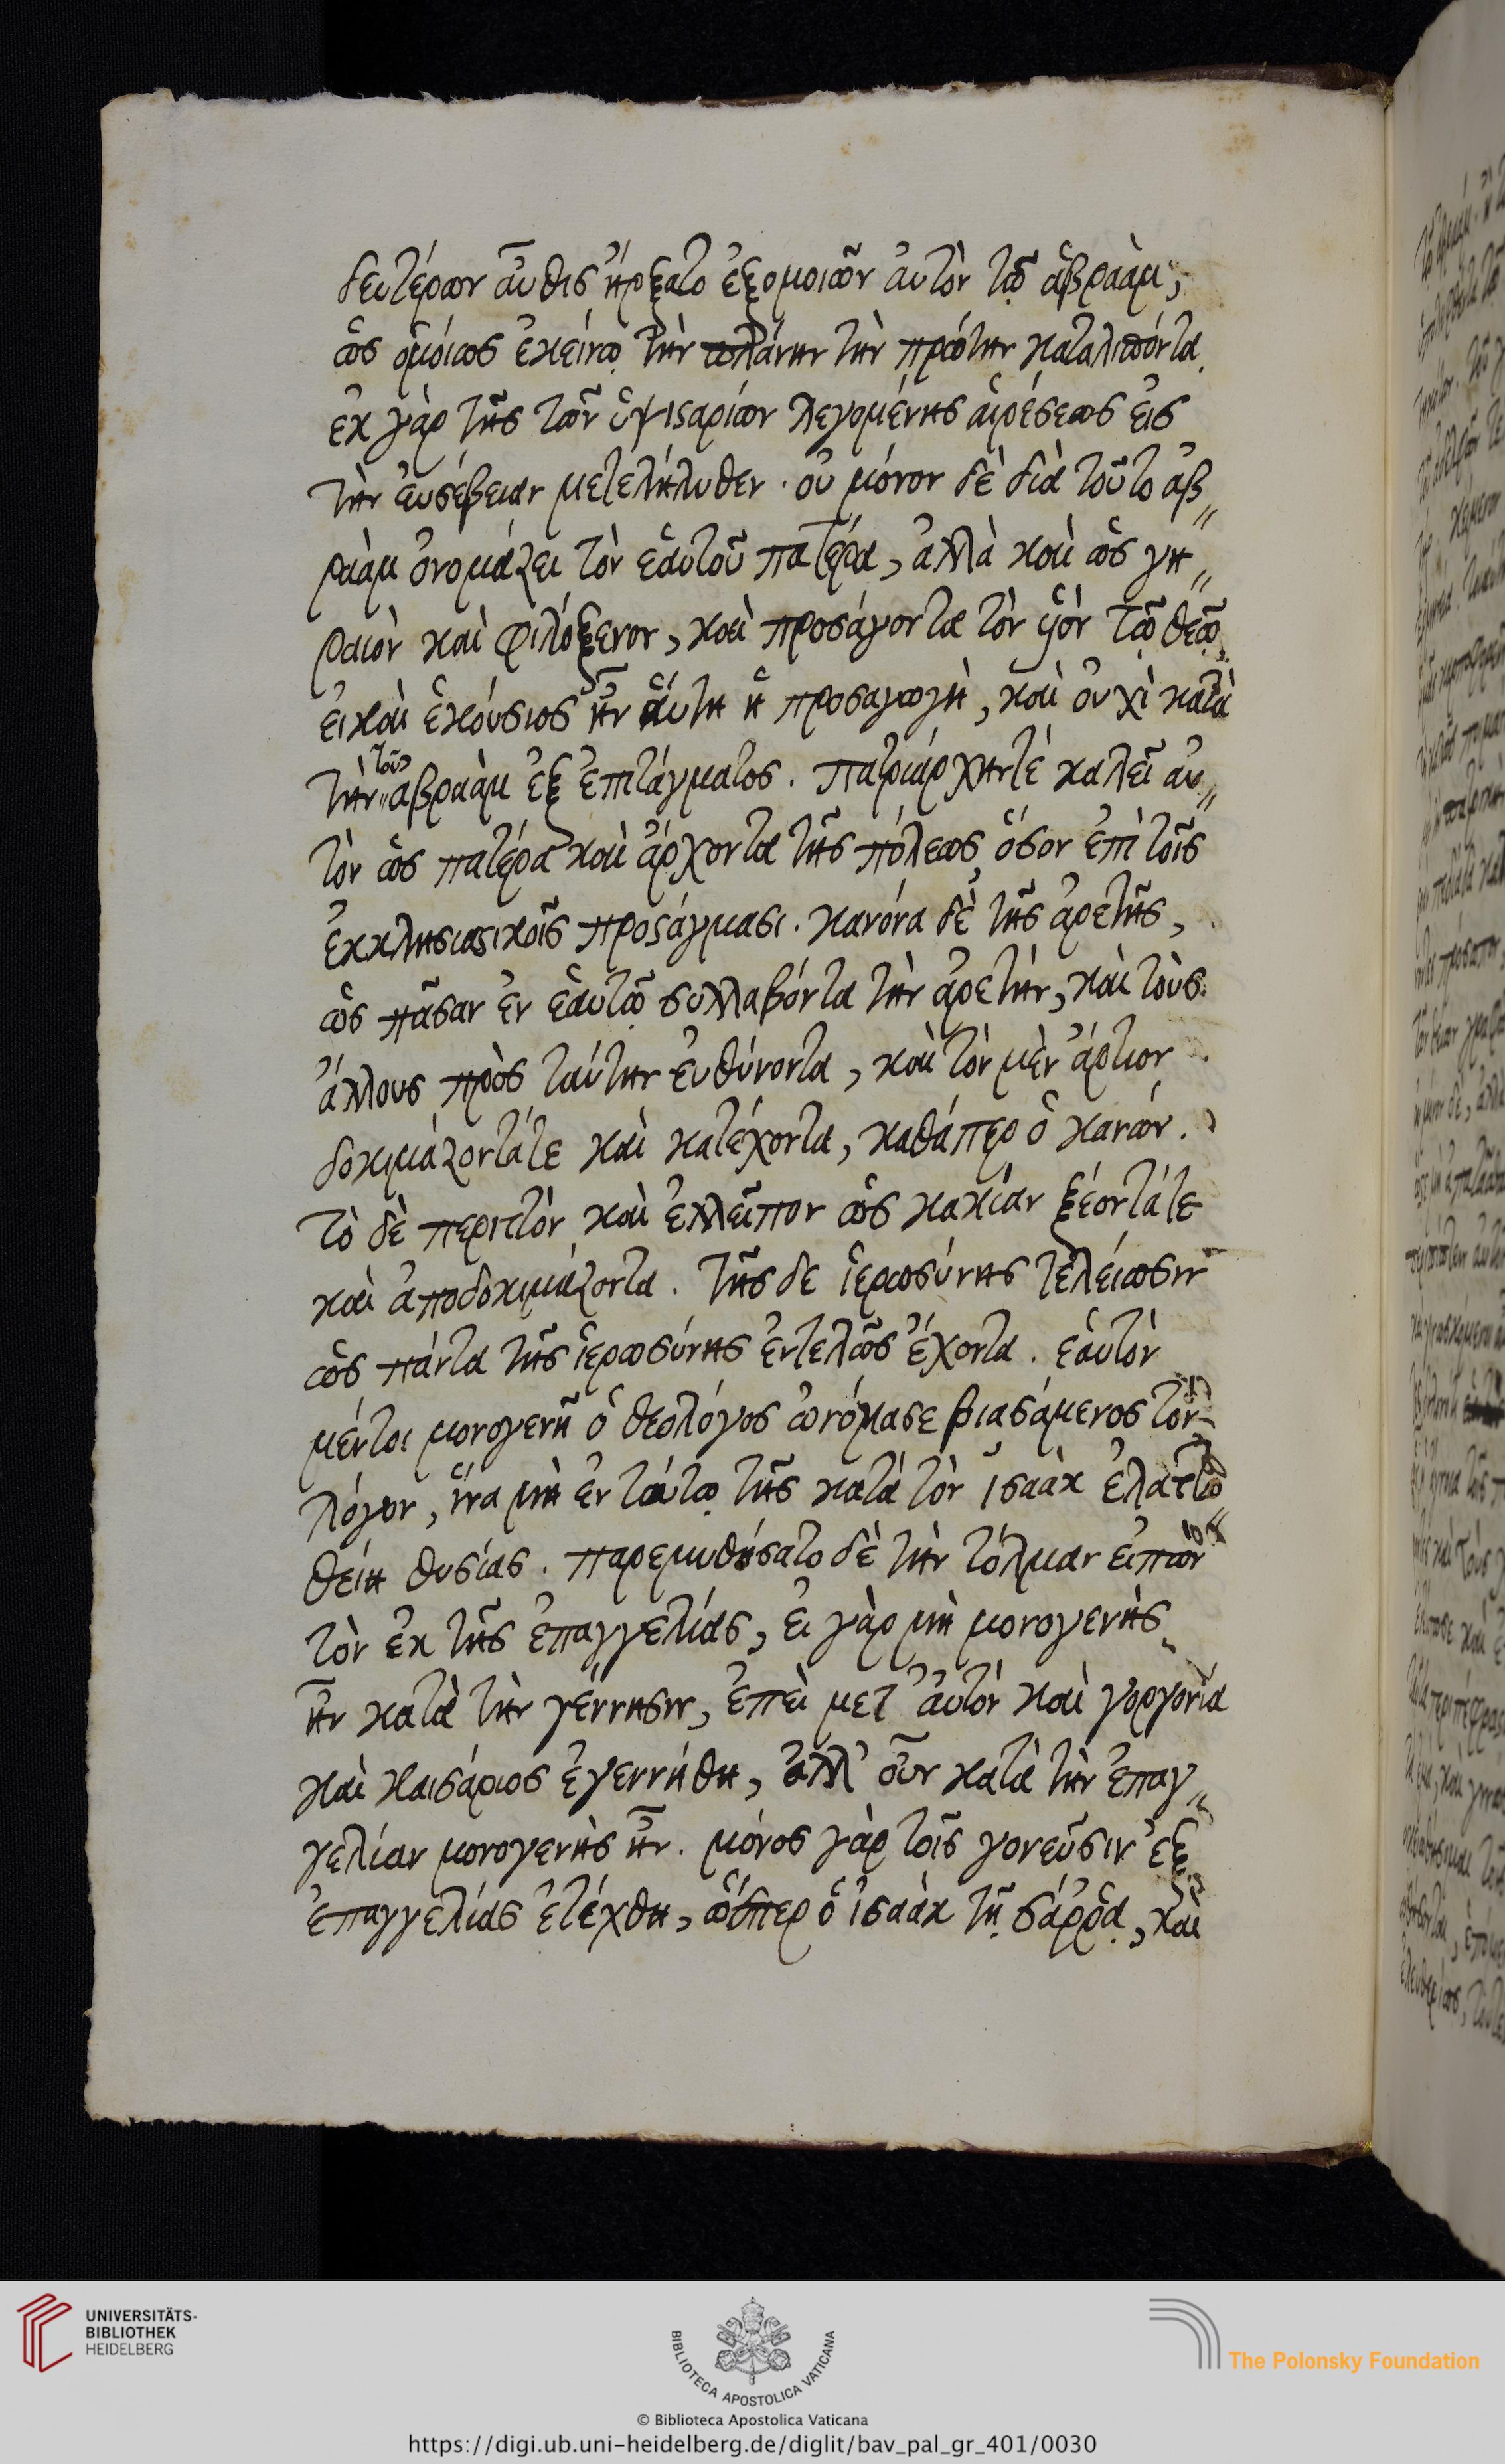 δευτέρων αὖθις ἤρξατο ἐξομοιῶν αὐτὸν τῷ ἀβραάμ,
ὡς ὁμοίως ἐκείνῳ τὴν πλάνην τὴν πρώτην καταλιπόντα.
ἐκ γὰρ τῆς τῶν ὑψισταρίων λεγομένης αἱρέσεως εἰς
τὴν εὐσέβειαν μετελήλυθεν. οὐ μόνον δὲ διὰ τοῦτο ἀβ„
ραὰμ ὀνομάζει τὸν ἑαυτοῦ πατέρα, ἀλλὰ καὶ ὡς γη„
ραιὸν καὶ φιλόξενον, καὶ προσάγοντα τὸν ὑιὸν τῷ θεῷ.
εἰ καὶ ἑκούσιος ἦν αὕτη ἡ προσαγωγὴ, καὶ οὐχὶ κατὰ
τὴν τοῦ ἀβραὰμ ἐξ ἐπιτάγματος. πατριάρχην τέ καλεῖ αὐ„
τὸν ὡς πατέρα καὶ ἄρχοντα τῆς πόλεως, ὅσον ἐπὶ τοῖς
ἐκκλησιαστικοῖς προστάγμασι. κανόνα δὲ τῆς ἀρετῆς,
ὡς πᾶσαν ἐν ἑαυτῷ συλλαβόντα τὴν ἀρετὴν, καὶ τοὺς
ἄλλους πρὸς ταύτην εὐθύνοντα, καὶ τὸν μὲν ἄρτιον
δοκιμάζοντάτε καὶ κατέχοντα, καθάπερ ὁ κανών.
τὸ δὲ περιττὸν καὶ ἐλλεῖπον ὡς κακίαν ξέοντάτε
καὶ ἀποδοκιμάζοντα. τῆς δε ἱερωσύνης τελείωσιν
ὡς πάντα τῆς ἱερωσύνης ἐντελῶς ἔχοντα. ἑαυτὸν
μέντοι μονογενῆ ὁ θεολόγος ὠνόμασε βιασάμενος τὸν
λόγον, ἵνα μὴ ἐν τούτῳ τῆς κατὰ τὸν ἰσαὰκ ἐλαττω„
θείη θυσίας. παρεμυθήσατο δὲ τὴν τόλμαν εἰπὼν
τὸν ἐκ τῆς ἐπαγγελίας, εἰ γὰρ μὴ μονογενὴς
ἦν κατὰ τὴν γέννησιν, ἐπεὶ μετ’ αὐτὸν καὶ γοργονία
καὶ καισάριος ἐγεννήθη, ἀλλ’ οὖν κατὰ τὴν ἐπαγ„
γελίαν μονογενὴς ἦν. μόνος γὰρ τοῖς γονεῦσιν ἐξ
ἐπαγγελίας ἐτέχθη, ὥσπερ ὁ ἰσαὰκ τῇ σάῤῥᾳ, καὶ
UNIVERSITÄTS-
BIBLIOTHEK
HEIDELBERG
BIBLIOTECA APOSTOLICA VATICANA
The Polonsky Foundation
© Biblioteca Apostolica Vaticana
https://digi.ub.uni-heidelberg.de/diglit/bav_pal_gr_401/0030